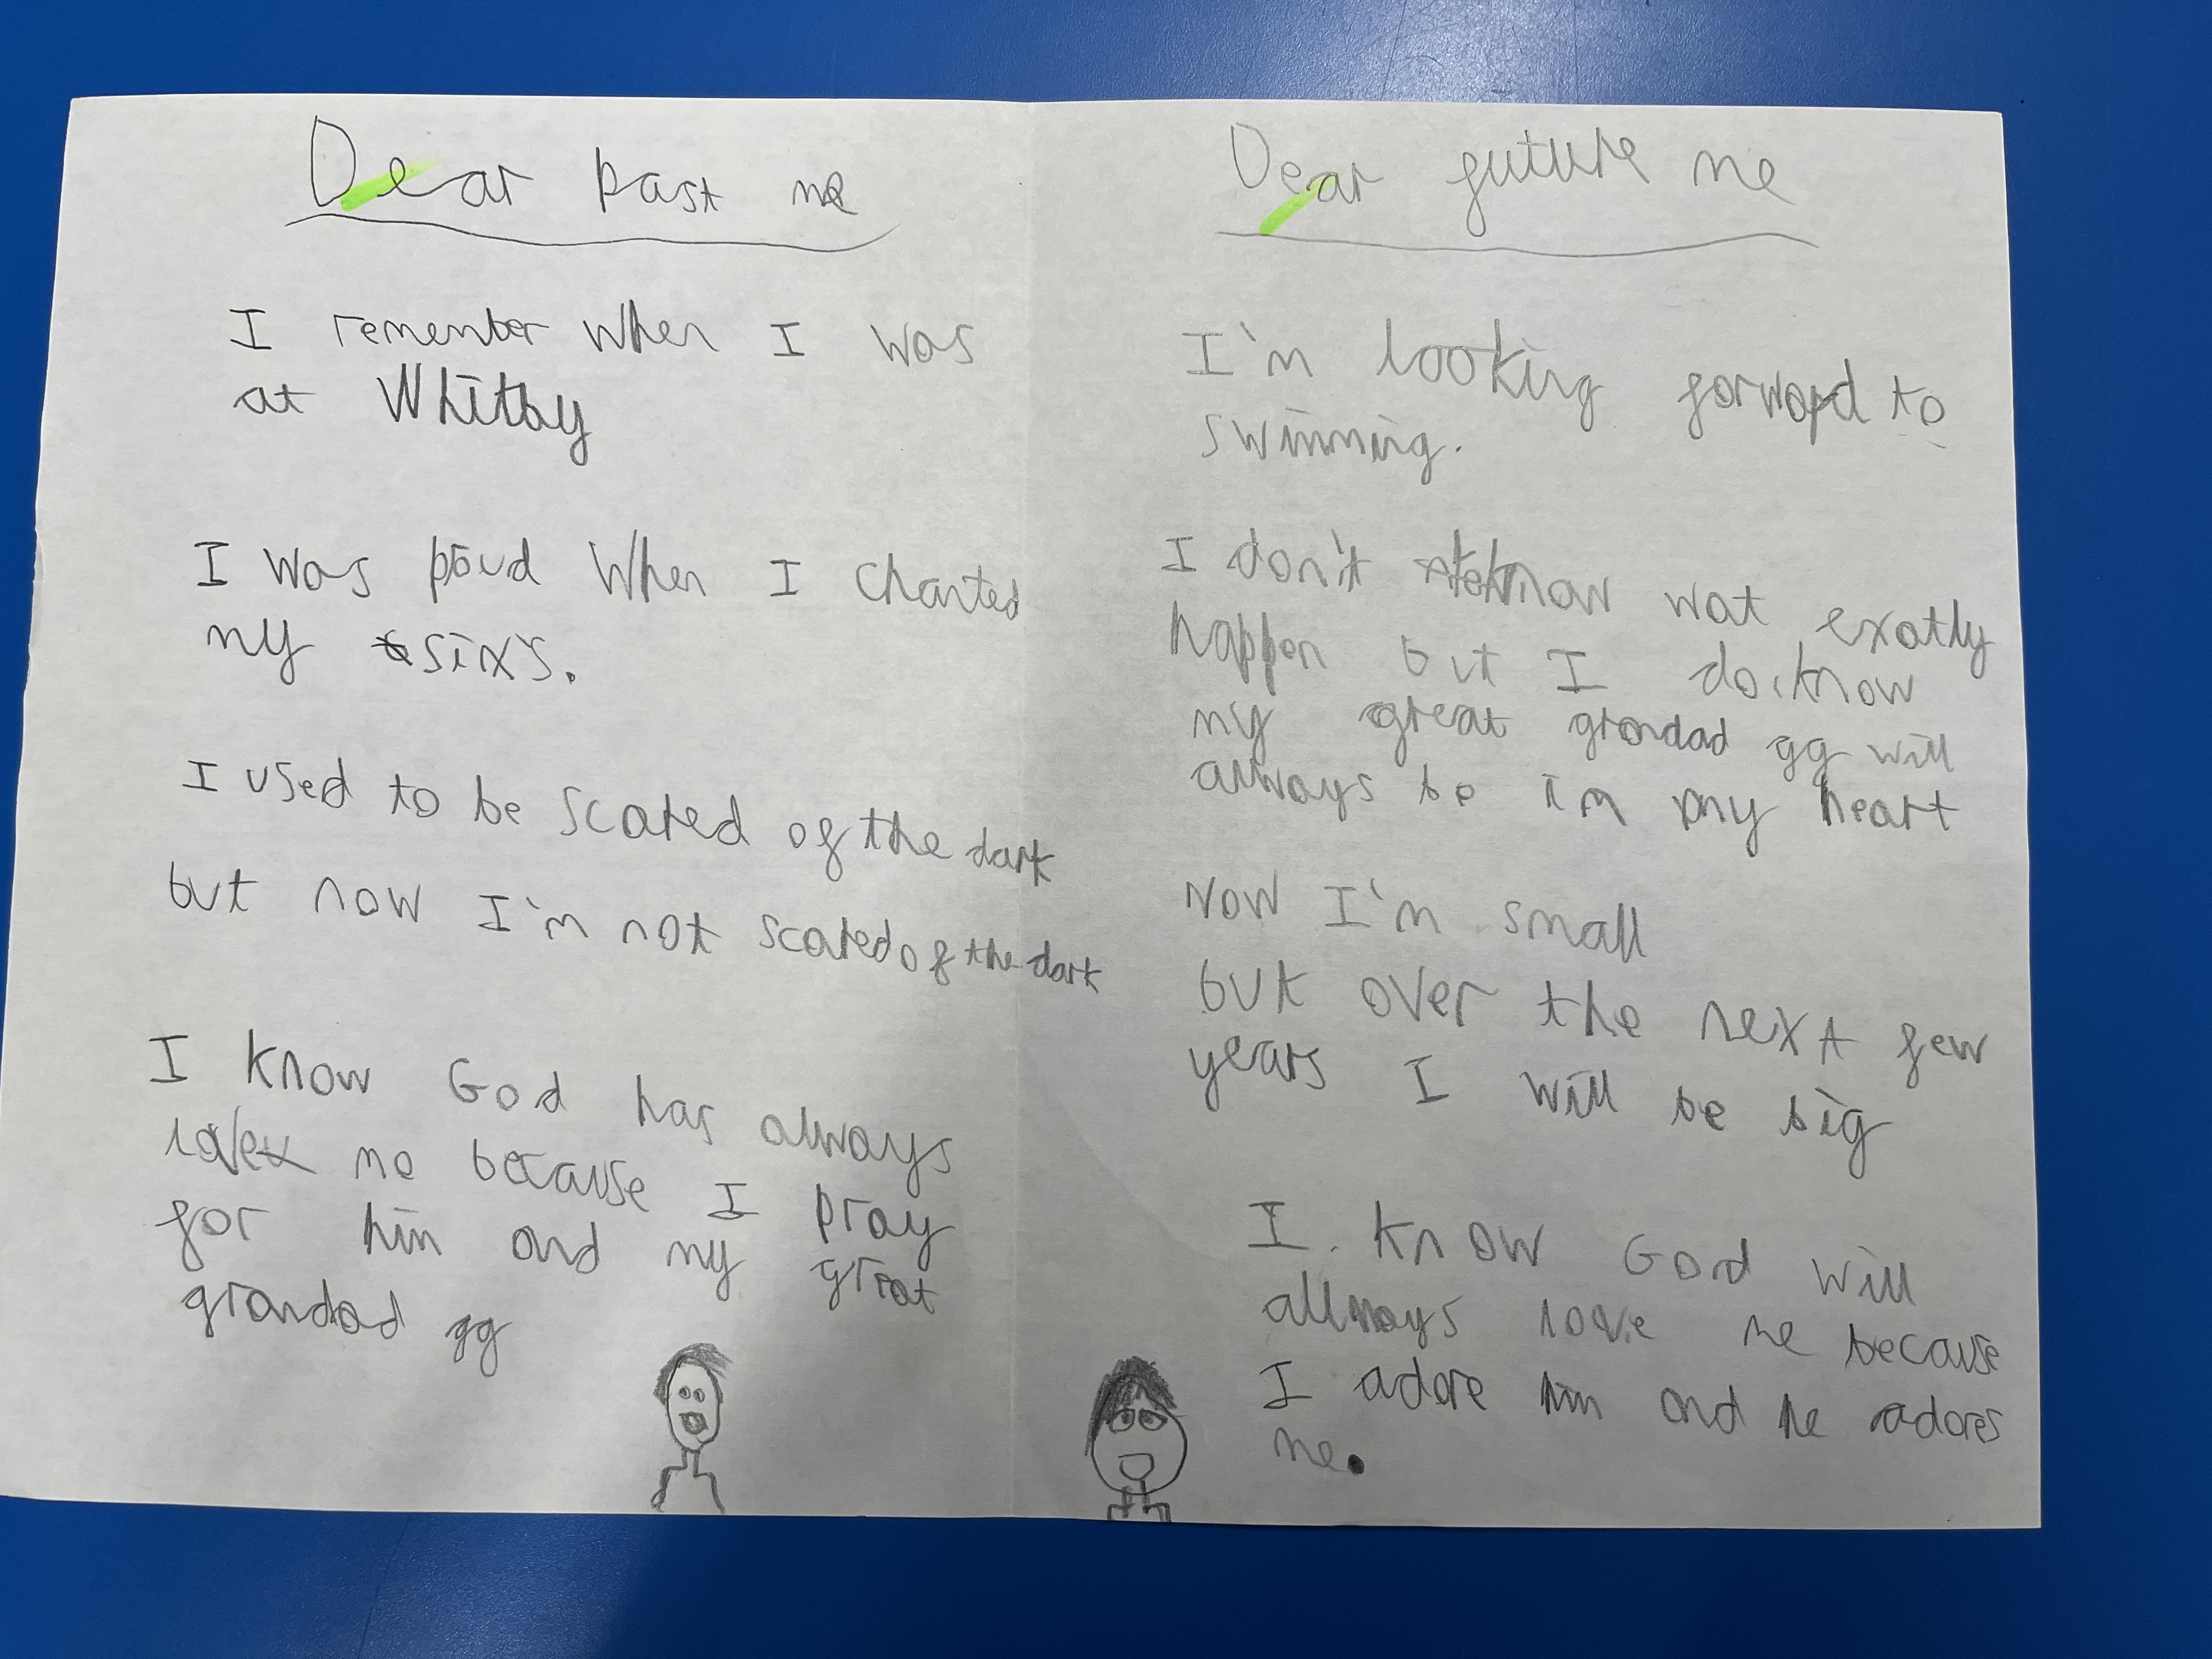 Dear past me
I remember when I was
at Whitby
I was proud when I chanted
my six's.
I used to be scared of the dark
but now I'm not scared of the dark
I know God has always
love me because I pray
for him and my great
grandad gg
Dear future me
I'm looking forward to
swimming.
I don't know wat exatly
happen but I do know
my great grandad gg will
always be in my heart
Now I'm small
but over the next few
years I will be big
I know God will
allways love me because
I adore him and he adores
me.